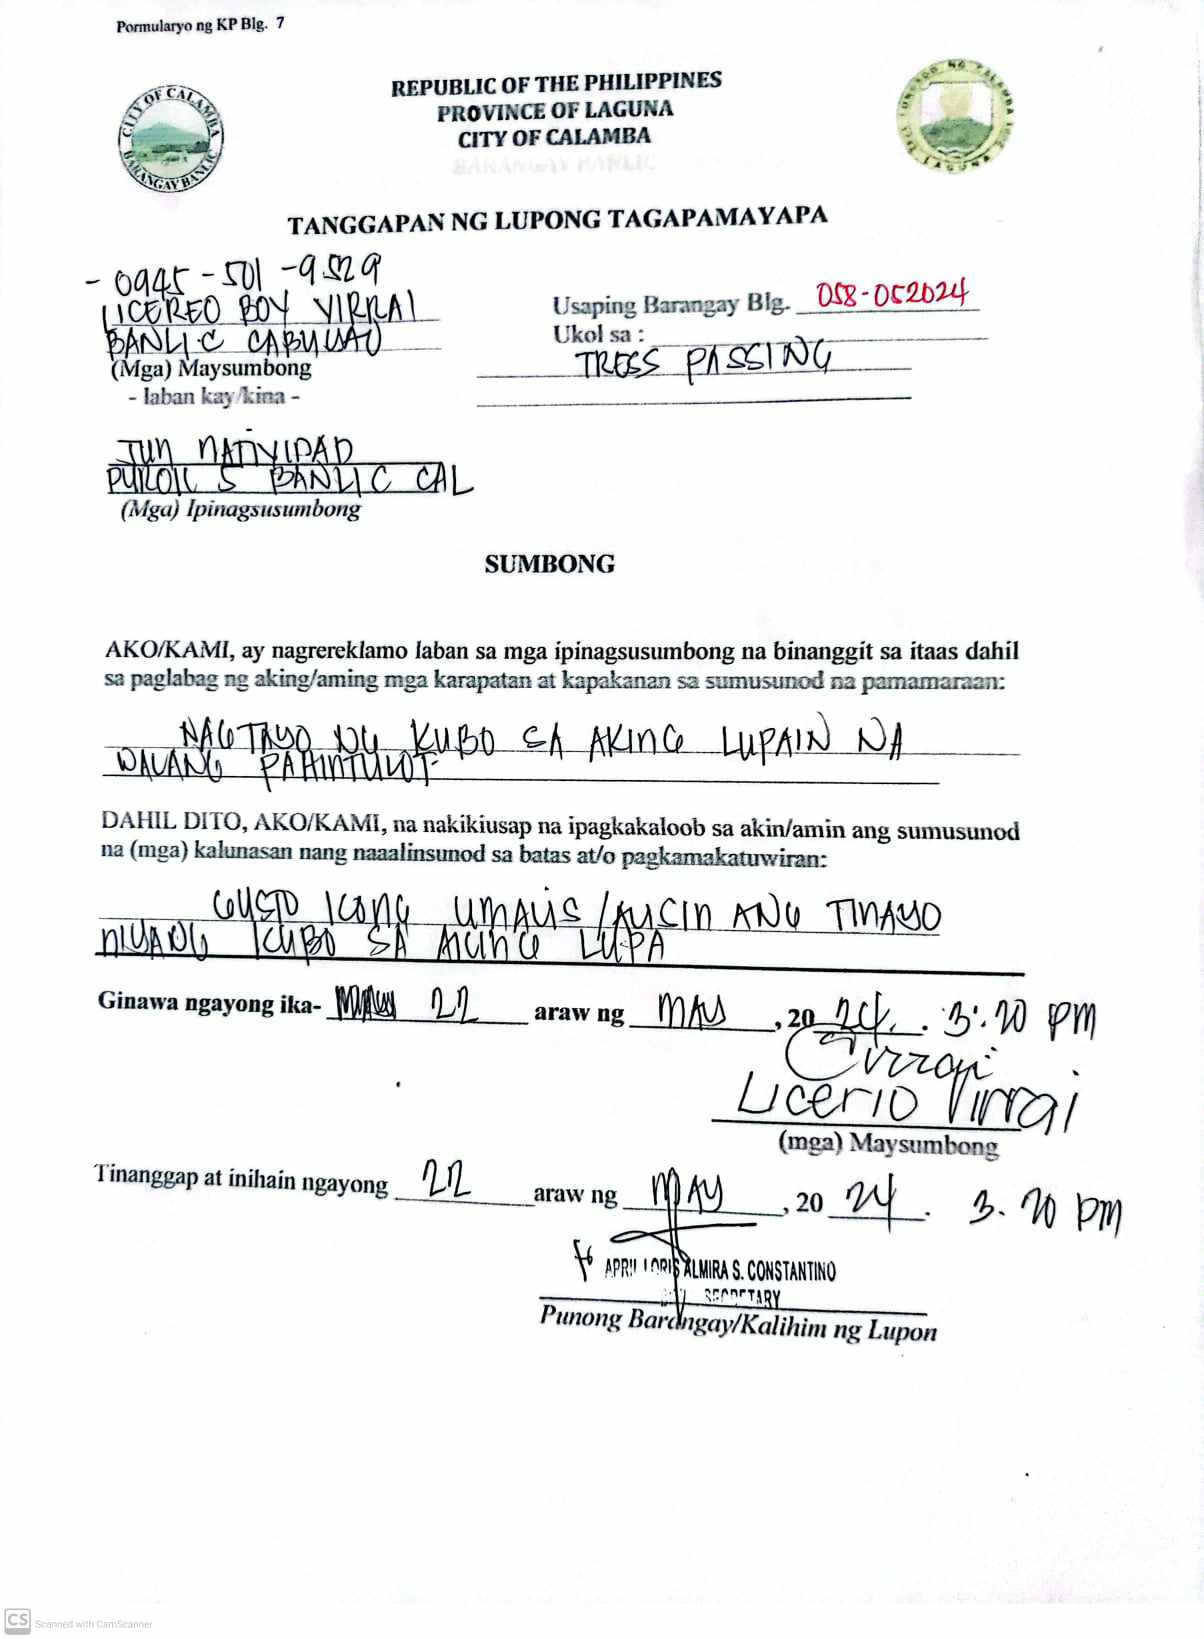 Pormularyo ng KP Blg. 7
CITY OF CALAMBA
BARANGAY BANLIC
REPUBLIC OF THE PHILIPPINES
PROVINCE OF LAGUNA
CITY OF CALAMBA
BARANGAY BANLIC
TANGGAPAN NG LUPONG TAGAPAMAYAPA
- 0945-501-9529
LICEREO BOY VIRRAI
BANLIC CABUYAO
(Mga) Maysumbong
- laban kay/kina -
Usaping Barangay Blg. 058-052024
Ukol sa :
TRESS PASSING
JUN NATIVIDAD
PUROK 5 BANLIC CAL
(Mga) Ipinagsusumbong
SUMBONG
AKO/KAMI, ay nagrereklamo laban sa mga ipinagsusumbong na binanggit sa itaas dahil
sa paglabag ng aking/aming mga karapatan at kapakanan sa sumusunod na pamamaraan:
NAGTAYO NG KUBO SA AKING LUPAIN NA
WALANG PAHINTULOT.
DAHIL DITO, AKO/KAMI, na nakikiusap na ipagkakaloob sa akin/amin ang sumusunod
na (mga) kalunasan nang naaalinsunod sa batas at/o pagkamakatuwiran:
GUSTO KONG UMALIS /AUSIN ANG TINAYO
NIYANG KUBO SA AKING LUPA
Ginawa ngayong ika- 22 araw ng MAY, 2024. 3:20 PM
Licerio Virrai
(mga) Maysumbong
Tinanggap at inihain ngayong 22 araw ng MAY, 2024. 3.20 pm
APRIL LORIS ALMIRA S. CONSTANTINO
SECRETARY
Punong Barangay/Kalihim ng Lupon
CS Scanned with CamScanner